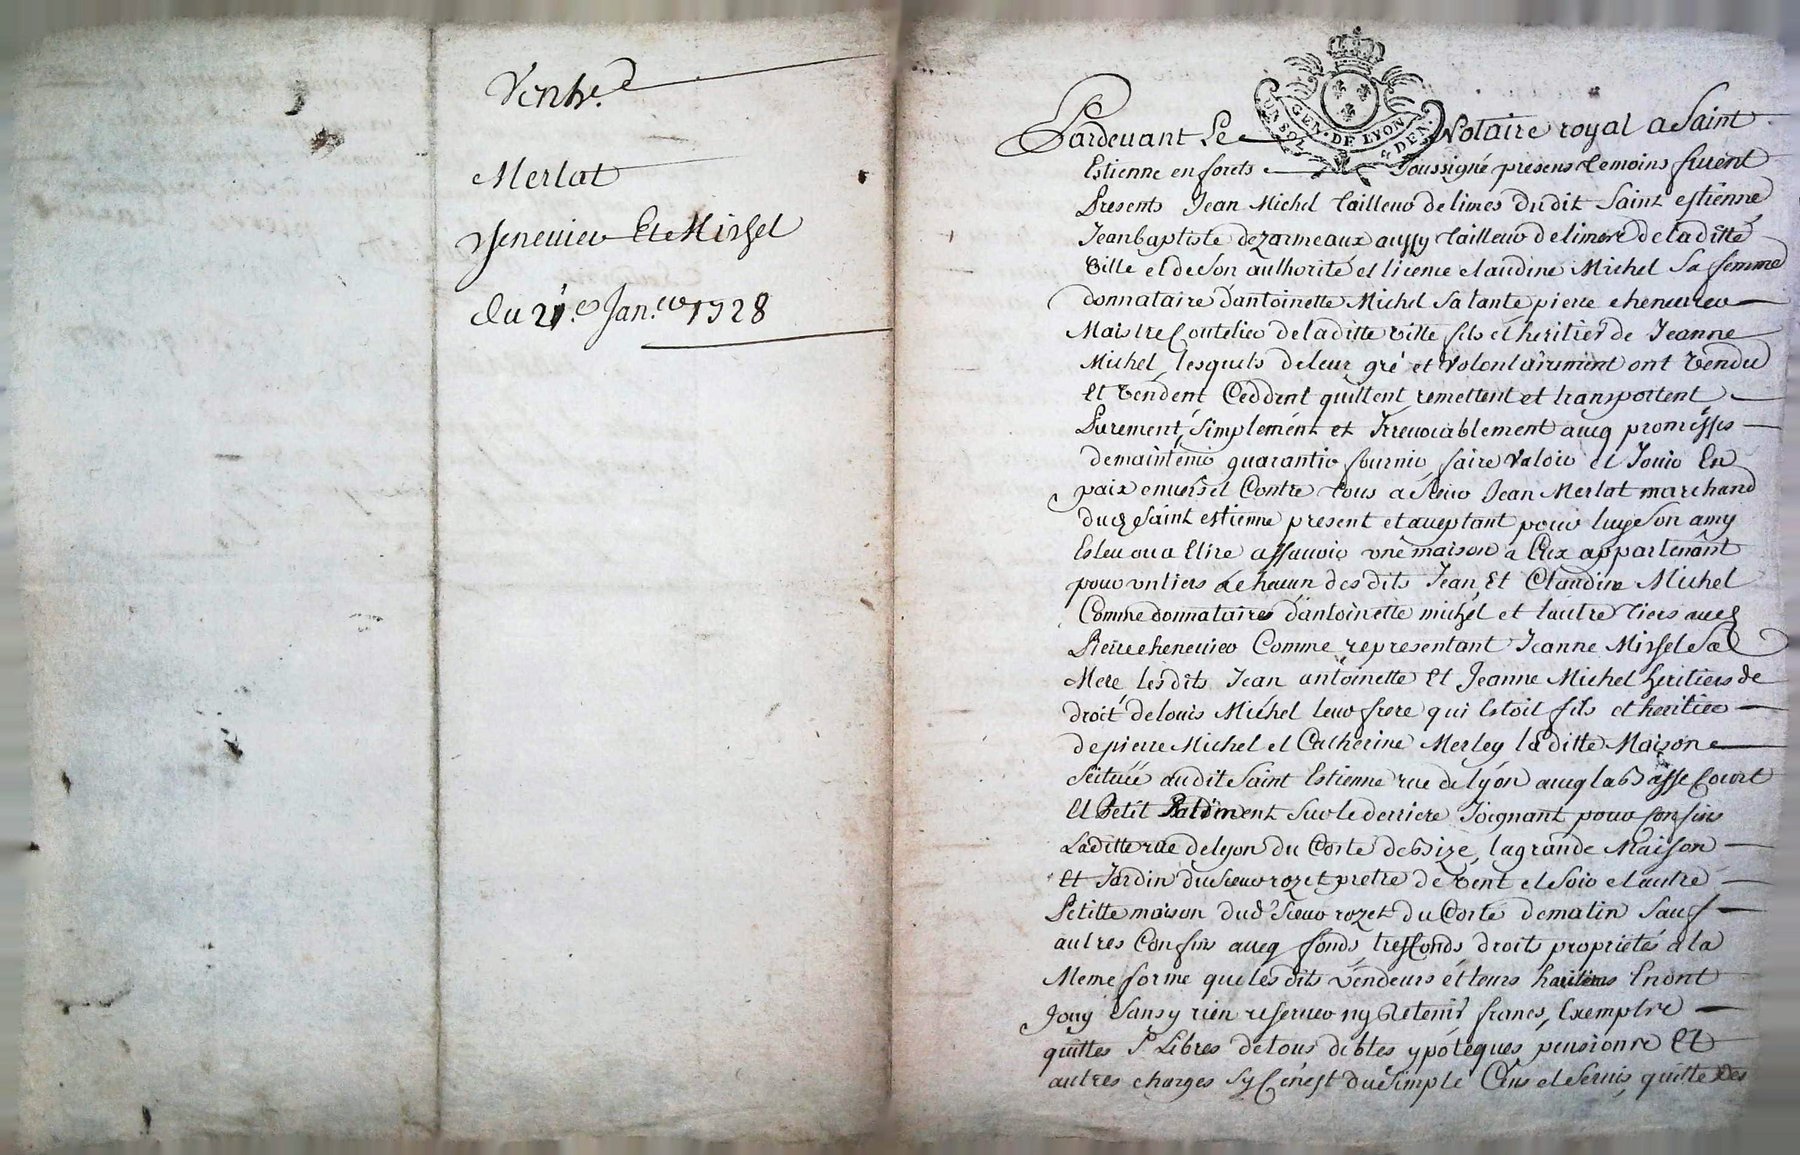 Vente
Merlat
Chenevier Et Michel
du 21e Janer 1728
GEN · DE LYON
UN SOL 4 DEN ·
Pardevant Le Notaire royal a Saint
Estienne en forets soussigné presens temoins furent
Presents Jean Michel tailleur de limes dudit Saint estienne
Jean baptiste dezormeaux aussy tailleur de limes de laditte
Ville et de son authorité et licence claudine Michel Sa femme
donnataire d'antoinette Michel Sa tante pierre chenevier
Maistre Coutelier de laditte Ville fils et heritier de Jeanne
Michel, lesquels de leur gré et Volontairement ont Vendu
Et Vendent Ceddent quittent remettent et transportent
Purement, Simplement et Irrevocablement avec promesses
de maintenir guarantir fournir faire Valoir et Jouir En
paix envers et Contre tous a Sieur Jean Merlat marchand
dud Saint estienne present et acceptant pour luy Son amy
Esleu ou a Elire assavoir une maison a Eux appartenant
pour un tiers a chacun des dits Jean, Et Claudine Michel
Comme donnataires d'antoinette michel et l'autre tiers aud
Pierre chenevier Comme representant Jeanne Michel Sa
Mere les dits Jean antoinette Et Jeanne Michel heritiers de
droit de louis Michel leur frere qui Estoit fils et heritier
de pierre Michel et Catherine Merley laditte Maison
scituée audit Saint Estienne rue de lyon avec la Basse Court
Et Petit Batiment Sur le derriere Joignant pour Confins
Laditte rue de lyon du Costé de Bize, la grande Maison
Et Jardin du Sieur rozet pretre de Vent et Soir et autre
Petitte maison dud Sieur rozet du Costé de matin Sauf
autres Confins avec fonds, tresfonds droits proprietés a la
Meme forme que les dits Vendeurs et leurs hauteurs En ont
Jouy Sans y rien reserver ny Retenir francs, Exempte
quittes & Libres de tous debtes ypoteques, pensions Et
autres charges Sy Ce n'est du Simple Cens et Servis, quitte des